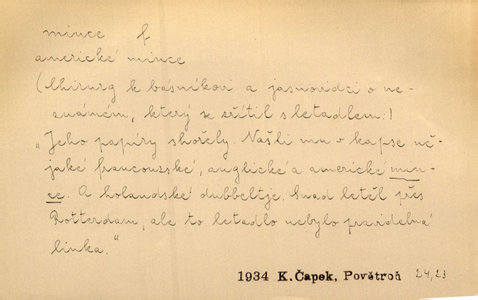 mince f
americké mince
(Chirurg k básníkovi a jasnovidci o ne-
známém, který se zřítil s letadlem:)
„Jeho papíry shořely. Našli mu v kapse ně-
jaké francouzské, anglické a americké min-
ce. A holandské dubbeltje. Snad letěl přes
Rotterdam, ale to letadlo nebylo pravidelná
linka."
1934 K. Čapek, Povětroň 24,23